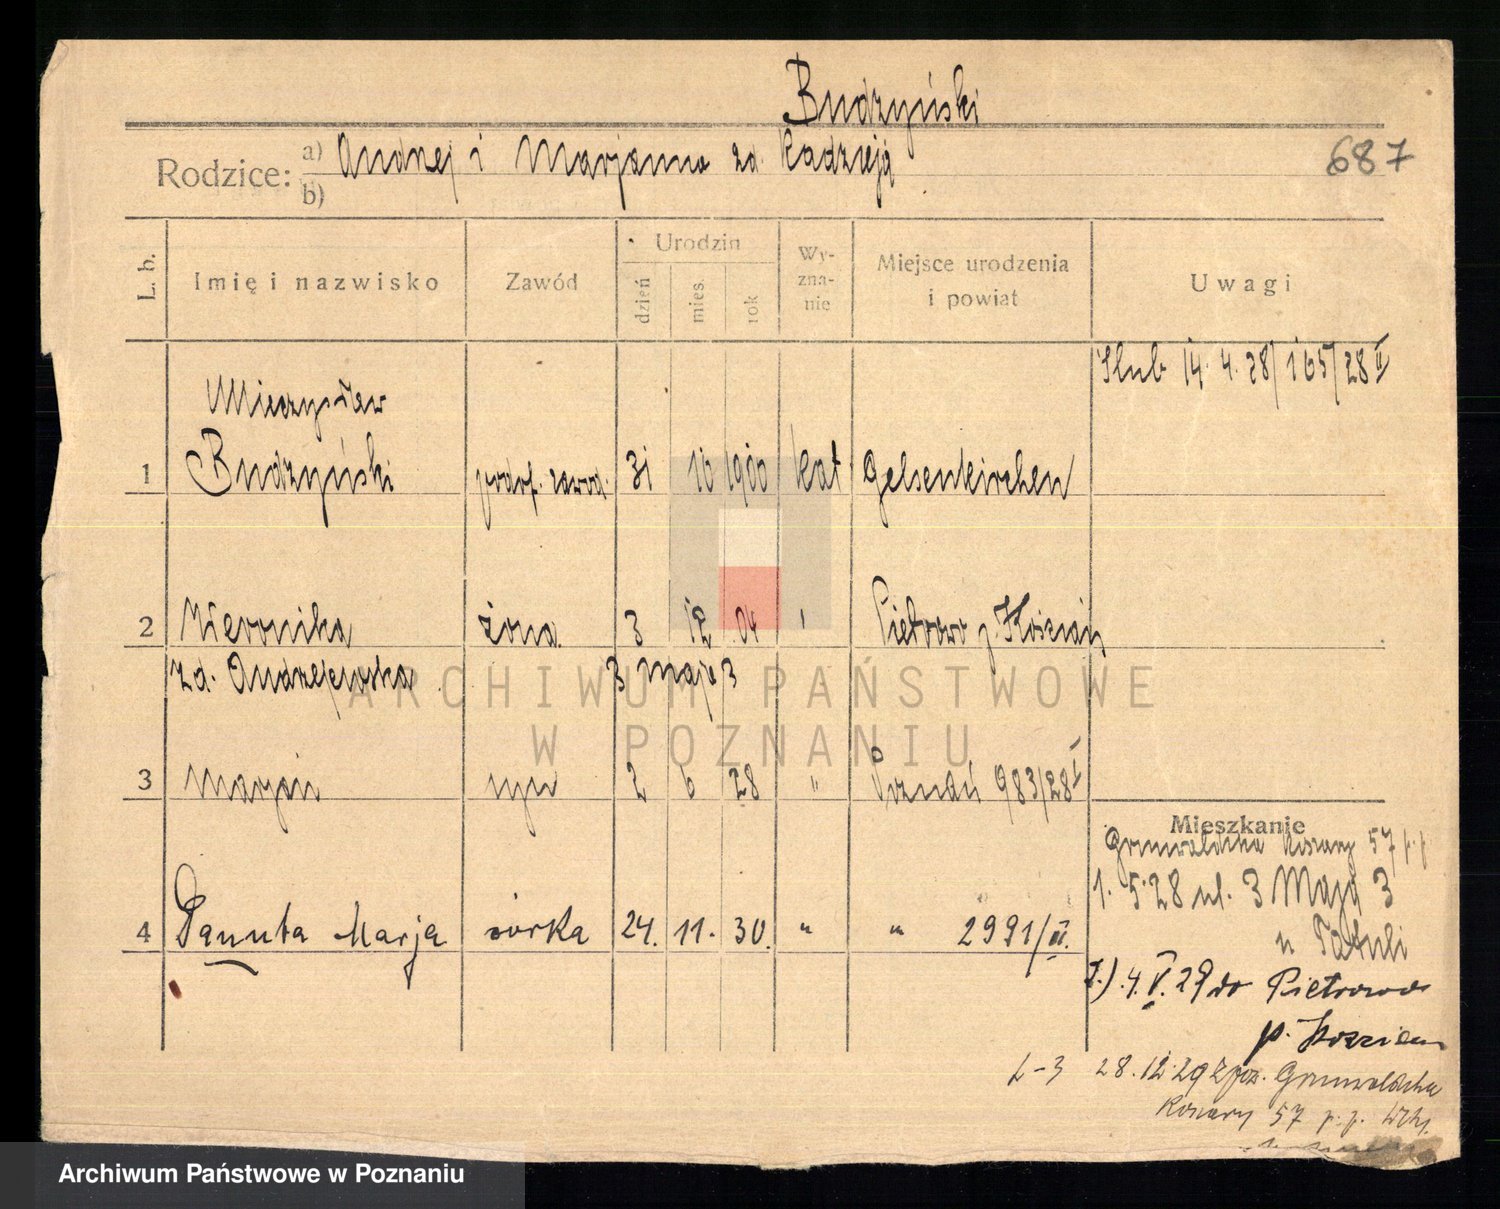 Budzyński
Rodzice: a) Andrzej i Marjanna zd. Kadzieją
b)
687
L. b. Imię i nazwisko Zawód Urodzin dzień mies. rok Wy-zna-nie Miejsce urodzenia i powiat Uwagi
Ślub 14. 4. 28/165/28 II
Mieczysław
1 Budzyński podof. zawod. 31 10 1900 kat Gelsenkirchen
2 Weronika żona 3 12 04 " Pietrowo p. Kościan
zd. Andrzejewska 3 Maja 3
3 Marjan syn 2 6 28 " Poznań 983/28 I
Mieszkanie
Grunwaldzka Koszary 57 p.p
1. 5 28 ul. 3 Maja 3
4 Danuta Marja córka 24. 11. 30. " " 2991/II.
u Patuli
4. V. 29 do Pietrowo
p. Kościan
1-3 28. 12. 29 z poz. Grunwaldzka
Koszary 57 p. p. Wlkp.
ARCHIWUM PAŃSTWOWE
W POZNANIU
Archiwum Państwowe w Poznaniu